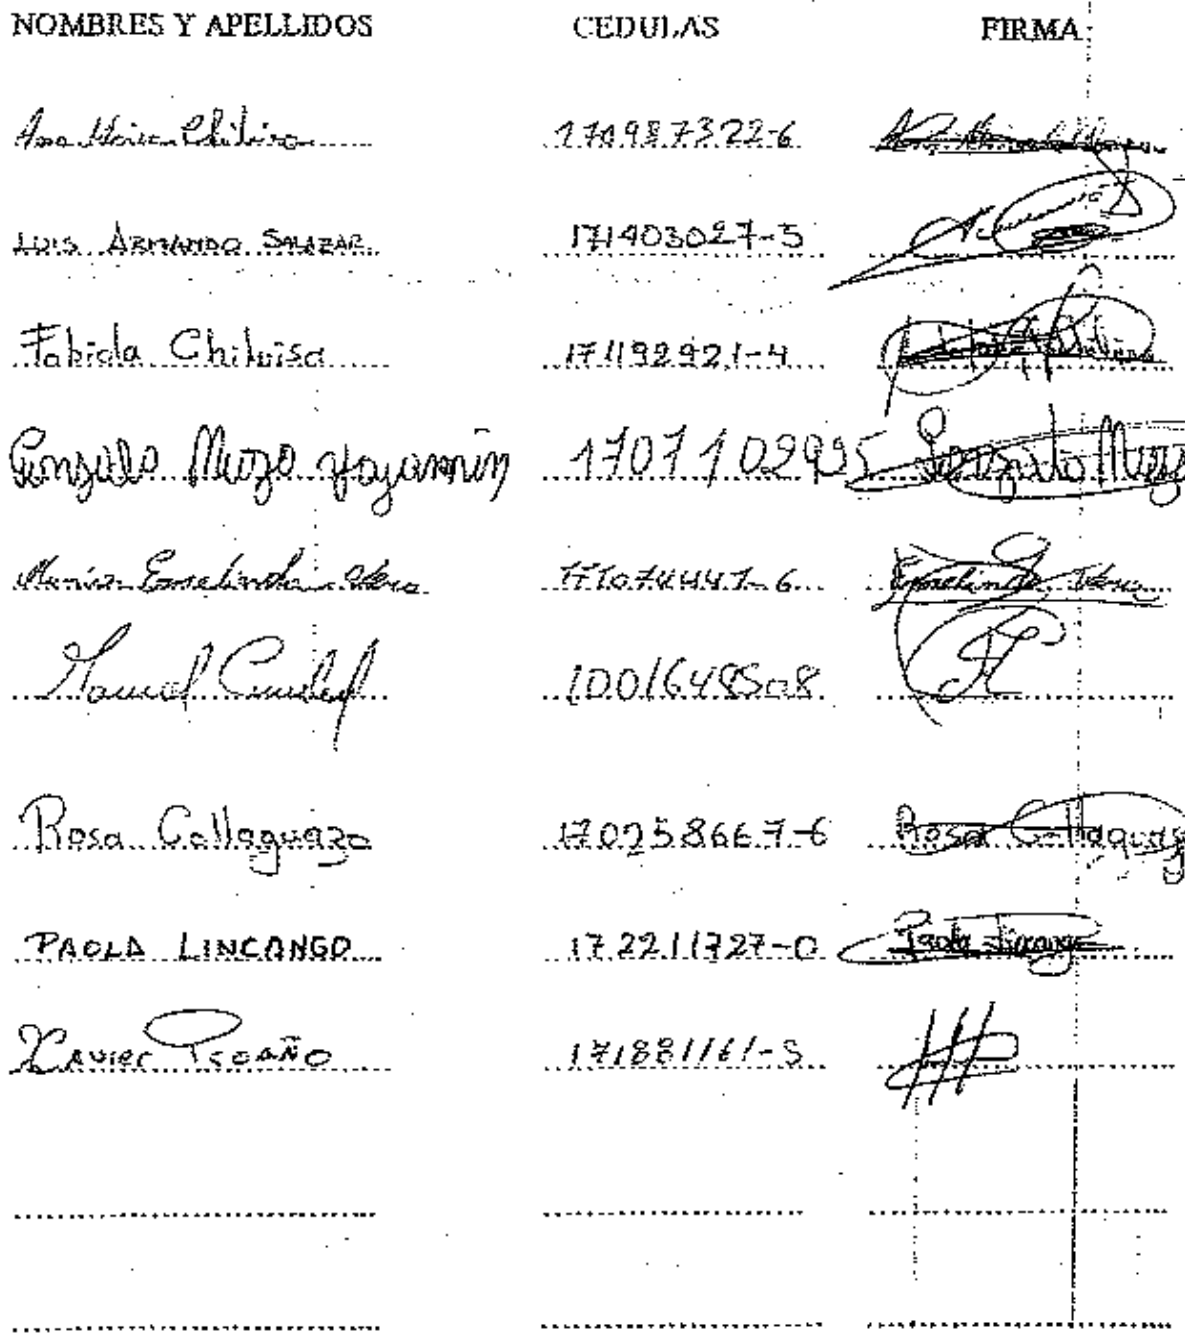 NOMBRES Y APELLIDOS CEDULAS FIRMA
Ana María Chiluisa 170987322-6
LUIS ARMANDO SALAZAR 171403027-3
Fabiola Chiluisa 171192921-4
Gonzalo Muzo 1707102995 Gonzalo Muzo
María Ermelinda Vera 171074447-6 Ermelinda Vera
Manuel 1001648508
Rosa Collaguazo 170258667-6 Rosa Collaguazo
PAOLA LINCANGO 172211727-0 Paola Lincango
XAVIER 171881161-5